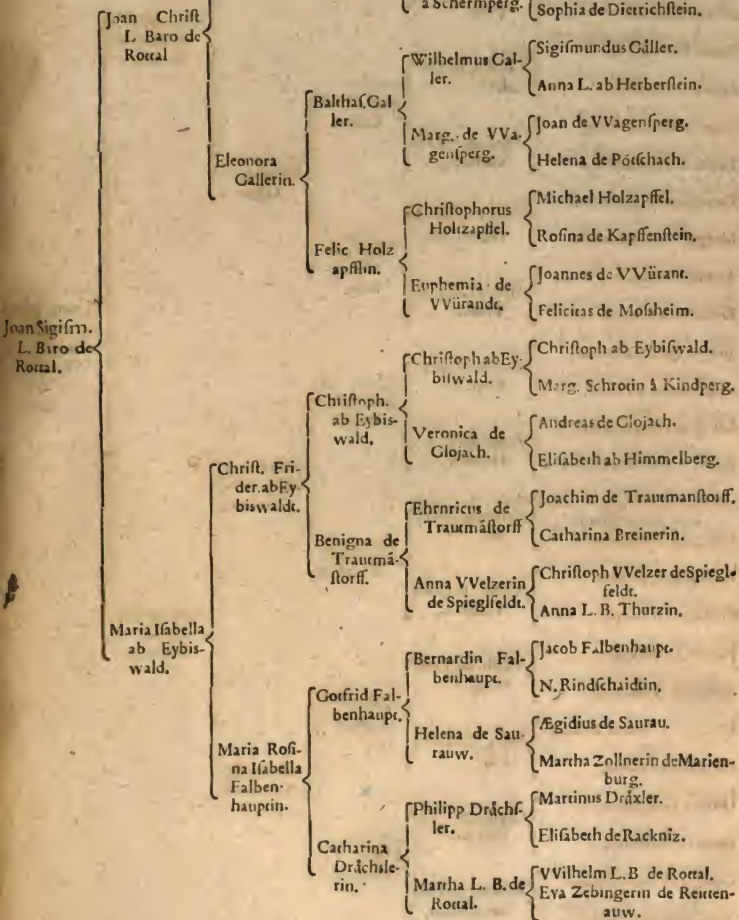 Joan Chriſt
L. Baro de
Rottal
Joan Sigiſm.
L. Baro de
Rottal.
Maria Iſabella
ab Eybis-
wald.
Eleonora
Gallerin.
Chriſt. Fri-
der. ab Ey-
biswaldt.
Maria Roſi-
na Iſabella
Falben-
hauptin.
Balthaſ. Gal
ler.
Felic Holz
apfflin.
Chriſtoph.
ab Eybis-
wald.
Benigna de
Trautmã-
ſtorff.
Gotfrid Fal-
benhaupt.
Catharina
Dråchsle-
rin.
à Schermperg.
Wilhelmus Gal-
ler.
Marg. de VVa-
genſperg.
Chriſtophorus
Holtzapffel.
Euphemia de
VVürandt.
Chriſtoph ab Ey-
biswald.
Veronica de
Glojach.
Ehrnricus de
Trautmãſtorff
Anna VVelzerin
de Spieglfeldt.
Bernardin Fal-
benhaupt.
Helena de Sau-
rauw.
Philipp Dråchſ-
ler.
Martha L. B. de
Rottal.
Sophia de Dietrichſtein.
Sigiſmundus Gåller.
Anna L. ab Herberſtein.
Joan de VVagenſperg.
Helena de Pötſchach.
Michael Holzapffel.
Roſina de Kapffenſtein.
Joannes de VVürant.
Felicitas de Moſsheim.
Chriſtoph ab Eybiſwald.
Marg. Schrotin à Kindperg.
Andreas de Glojach.
Eliſabeth ab Himmelberg.
Joachim de Trautmanſtorff.
Catharina Breinerin.
Chriſtoph VVelzer de Spiegl-
feldt.
Anna L. B. Thurzin.
Jacob Falbenhaupt.
N. Rindſchaidtin.
Ægidius de Saurau.
Martha Zollnerin de Marien-
burg.
Martinus Dråxler.
Eliſabeth de Rackniz.
VVilhelm L. B de Rottal.
Eva Zebingerin de Reitten-
auw.